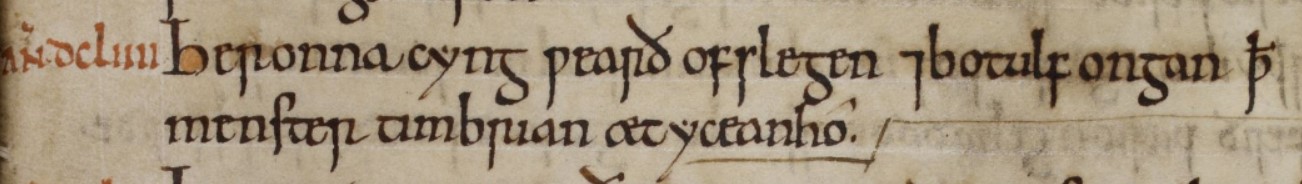 añ dcliiii Her onna cyng ƿearð ofslegen ⁊ botulf ongan ꝥ
menster timbrian æt yceanhó.